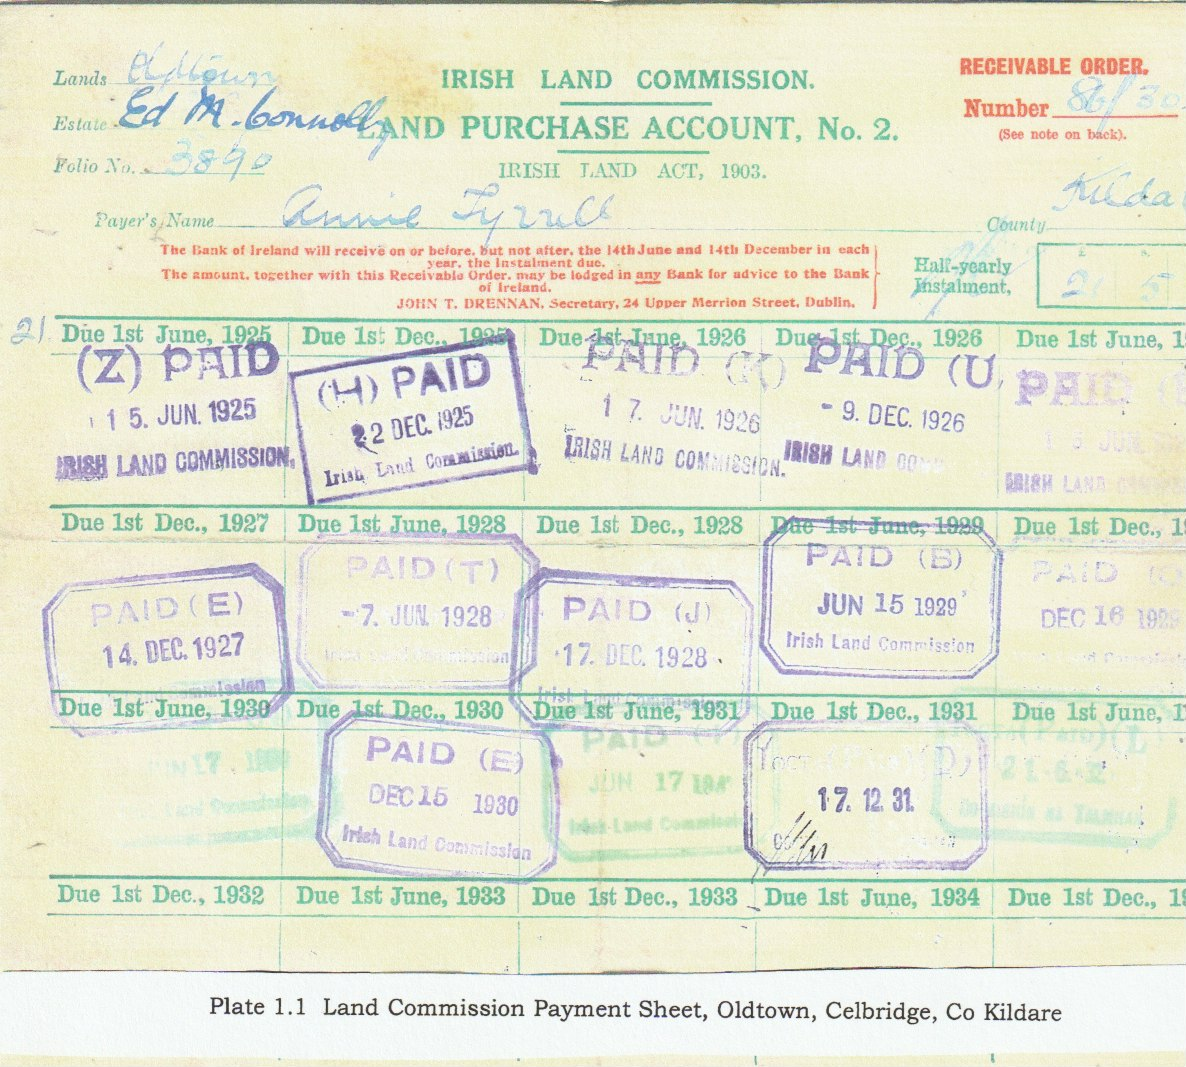 Lands Oldtown
IRISH LAND COMMISSION.
RECEIVABLE ORDER.
Estate Ed M. Connolly
LAND PURCHASE ACCOUNT, No. 2.
Number 86/30
(See note on back).
Folio No. 3890
IRISH LAND ACT, 1903.
Payer's Name Annie Tyrrell
County Kilda
The Bank of Ireland will receive on or before, but not after, the 14th June and 14th December in each
year, the Instalment due.
The amount, together with this Receivable Order, may be lodged in any Bank for advice to the Bank
of Ireland.
JOHN T. DRENNAN, Secretary, 24 Upper Merrion Street, Dublin.
Half-yearly
Instalment,
2 5
21
Due 1st June, 1925 Due 1st Dec., 1925 Due 1st June, 1926 Due 1st Dec., 1926 Due 1st June, 1
(Z) PAID
15. JUN. 1925
IRISH LAND COMMISSION.
(H) PAID
22 DEC. 1925
Irish Land Commission.
PAID (K)
17. JUN. 1926
IRISH LAND COMMISSION.
PAID (U
- 9. DEC. 1926
IRISH LAND COM
PAID
JUN
IRISH LAND
Due 1st Dec., 1927 Due 1st June, 1928 Due 1st Dec., 1928 Due 1st June, 1929 Due 1st Dec., 1
PAID (E)
14. DEC. 1927
Commission
PAID (T)
-7. JUN. 1928
Irish Land Commission
PAID (J)
17. DEC. 1928
Irish Land Commission
PAID (B)
JUN 15 1929
Irish Land Commission
PAID
DEC 16 1929
Due 1st June, 1930 Due 1st Dec., 1930 Due 1st June, 1931 Due 1st Dec., 1931 Due 1st June, 1
JUN 17
Land Commission
PAID (E)
DEC 15 1930
Irish Land Commission
PAID
JUN 17 193
Irish Land Commission
17. 12. 31.
(PAID) (L
21.6.32
Due 1st Dec., 1932 Due 1st June, 1933 Due 1st Dec., 1933 Due 1st June, 1934 Due 1st Dec., 1
Plate 1.1 Land Commission Payment Sheet, Oldtown, Celbridge, Co Kildare